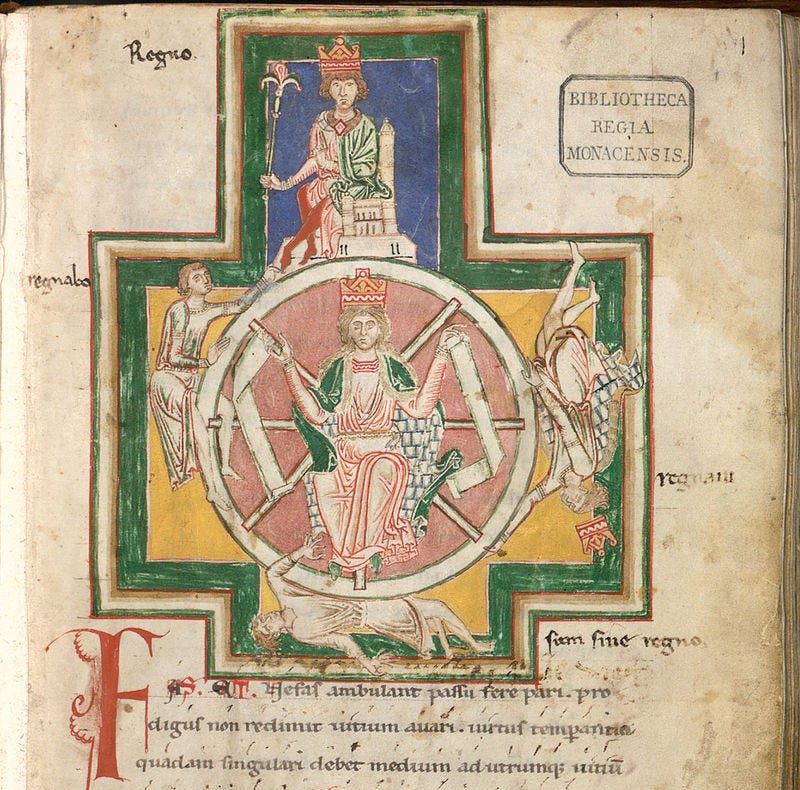 Regno.
BIBLIOTHECA
REGIA
MONACENSIS.
regnabo
regnaui
sum sine regno.
FAS. ET. Nefas ambulant passu fere pari. pro
digus non redimit uitium auari. uirtus temperantia
quadam singulari debet medium ad utrumq; uitiū